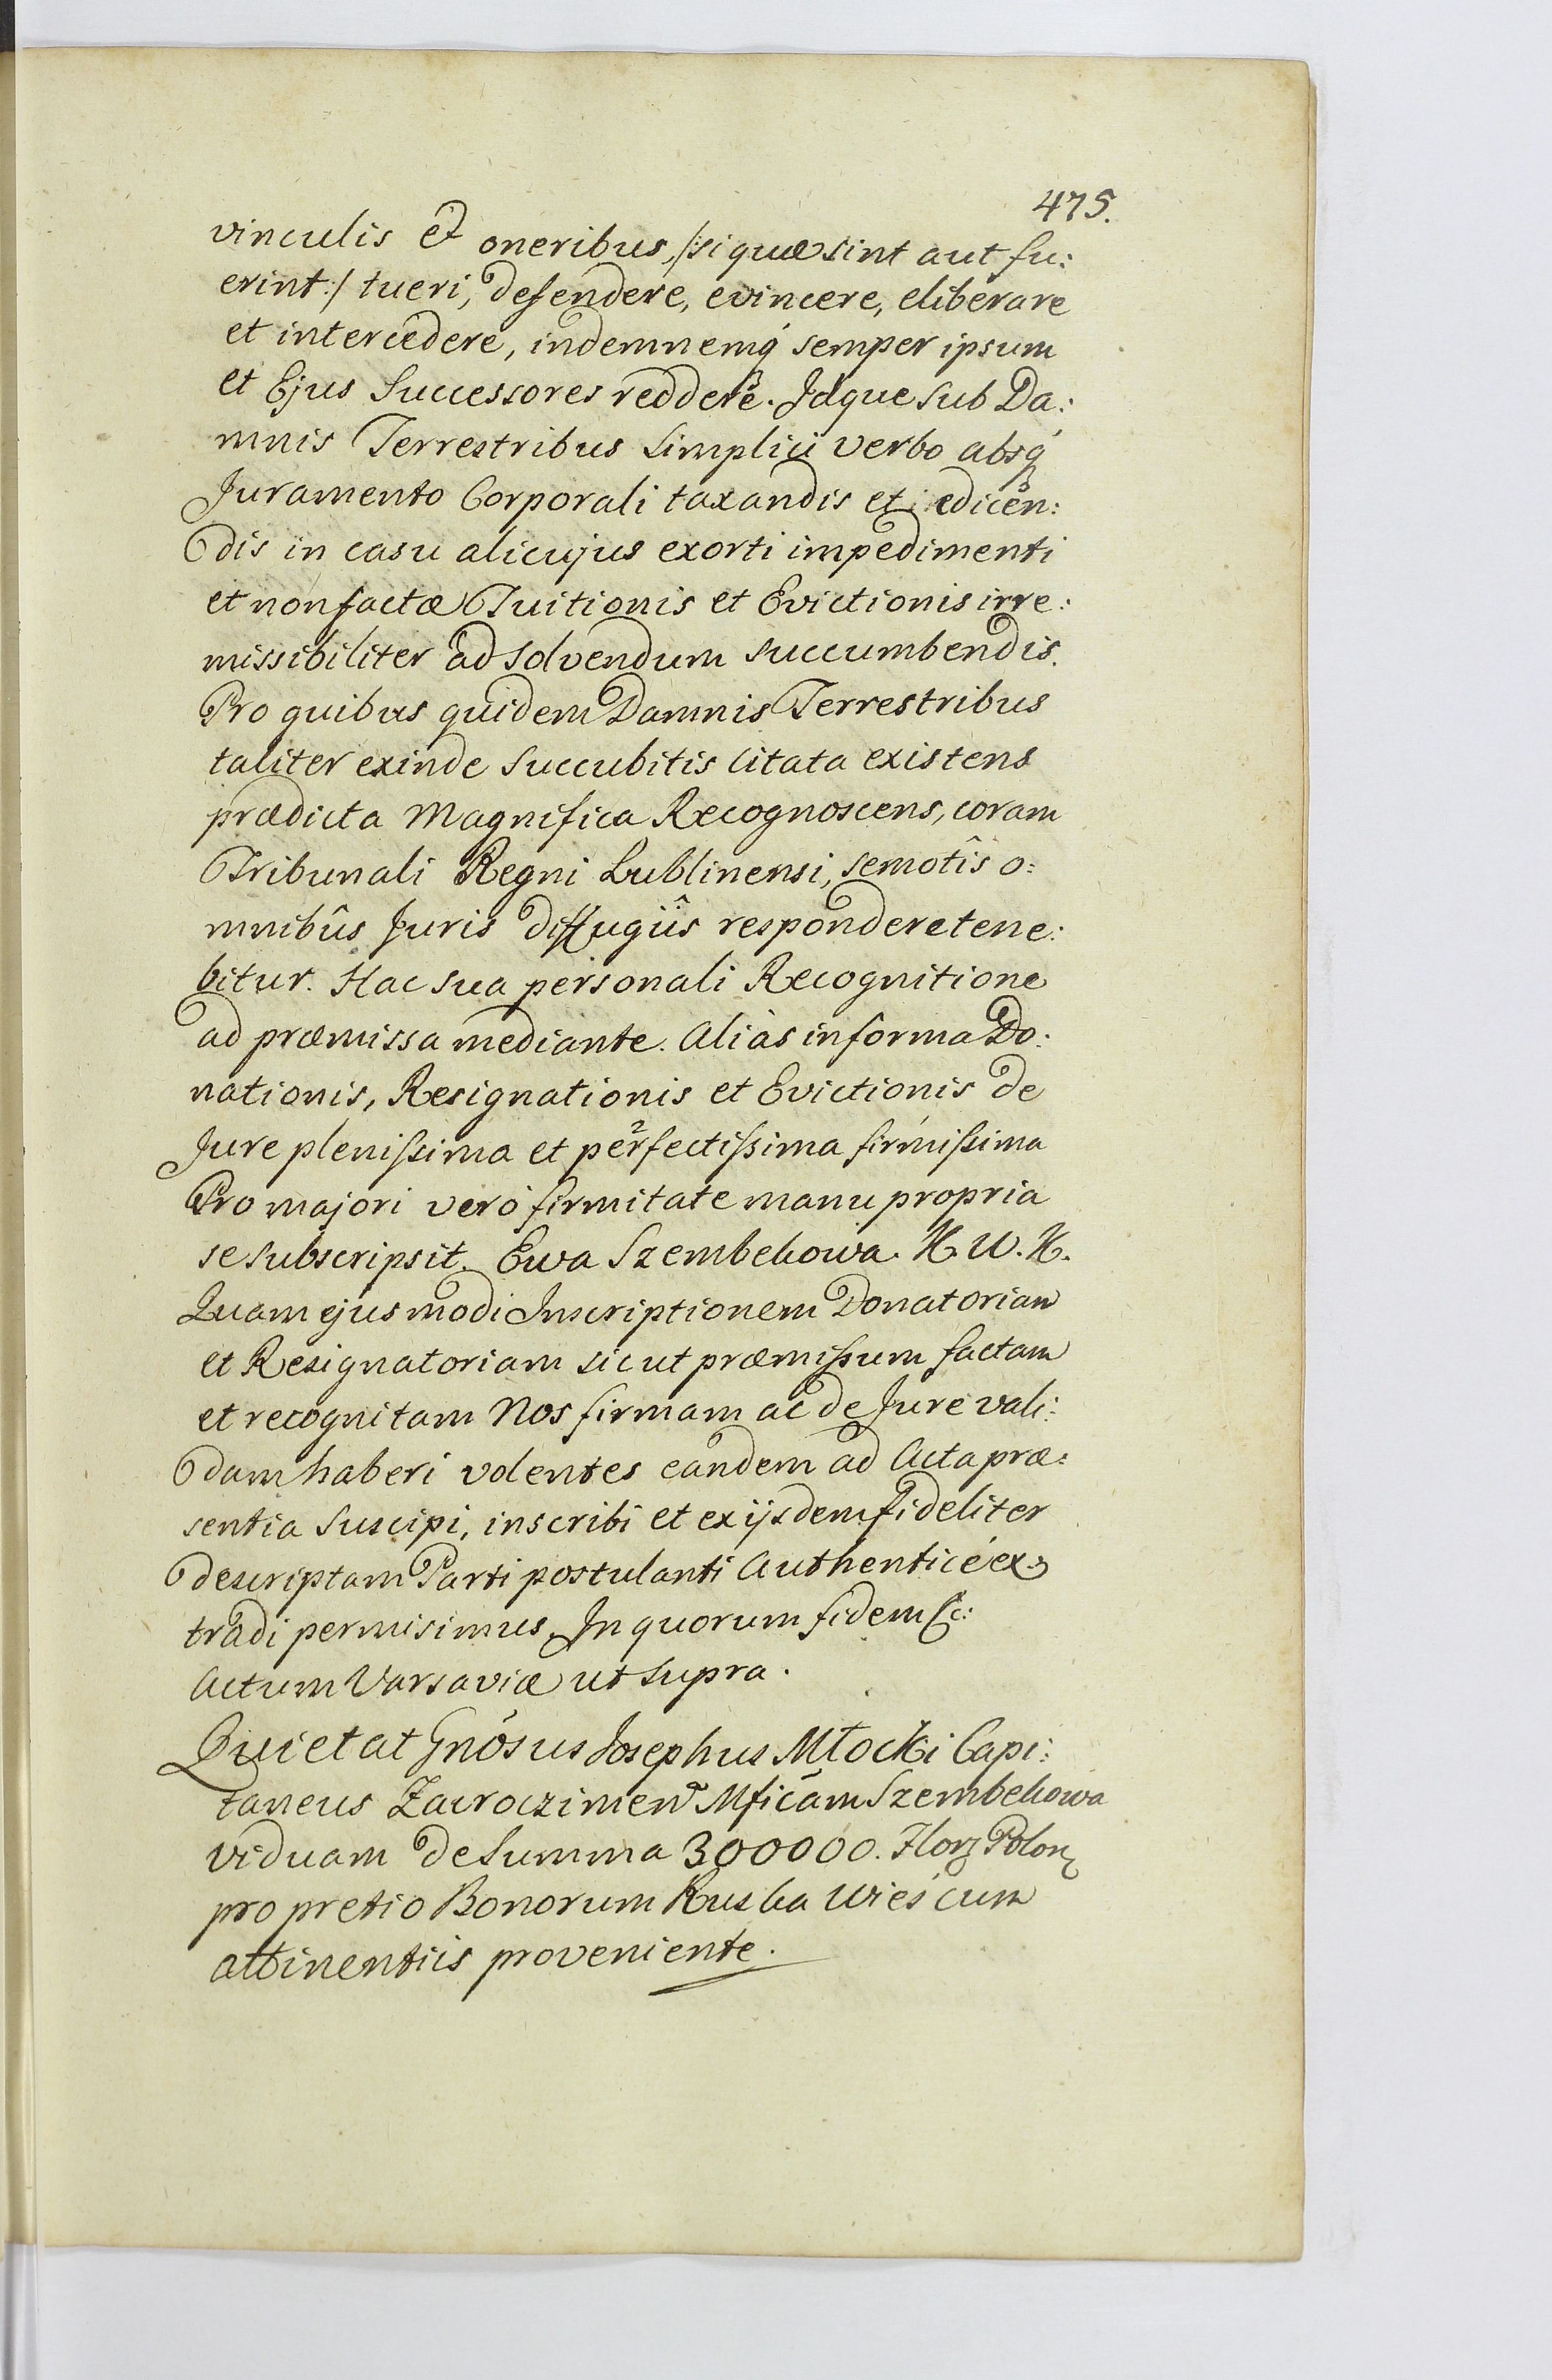 475.
vinculis et oneribus, /:si quæ sint aut fu:
erint:/ tueri, defendere, evincere, eliberare
et intercedere, indemnemq́ semper ipsum
et Ejus Successores reddere. Idque sub Da:
mnis Terrestribus simplici verbo absq́
Juramento Corporali taxandis et edicen:
dis in casu alicujus exorti impedimenti
et non factæ Tuitionis et Evictionis irre:
missibiliter ad solvendum succumbendis.
Pro quibus quidem Damnis Terrestribus
taliter exinde succubitis citata existens
prædicta Magnifica Recognoscens, coram
Tribunali Regni Lublinensi, semotîs o:
mnibûs Juris diffugiîs respondere tene:
bitur. Hac sua personali Recognitione
ad præmissa mediante. Aliàs in forma Do:
nationis, Resignationis et Evictionis de
Jure plenissima et perfectissima firmissima
Pro majori verò firmitate manu propria
se subscripsit. Ewa Szembekowa. K. W. K.
Quam ejusmodi Inscriptionem Donatoriam
et Resignatoriam sicut præmissum factam
et recognitam Nos firmam ac de Jure vali:
dam haberi volentes eandem ad Acta præ:
sentia suscipi, inscribi et ex ijsdem fideliter
descriptam Parti postulanti Authenticè ex:
tradi permisimus. In quorum fidem &c:
Actum Varsaviæ ut supra.
Quietat Gnosus Josephus Młocki Capi:
taneus Zacroczimen Mficam Szembekowa
viduam de Summa 300000. Flor Polon
pro pretio Bonorum Ruska Wieś cum
attinentiis proveniente.